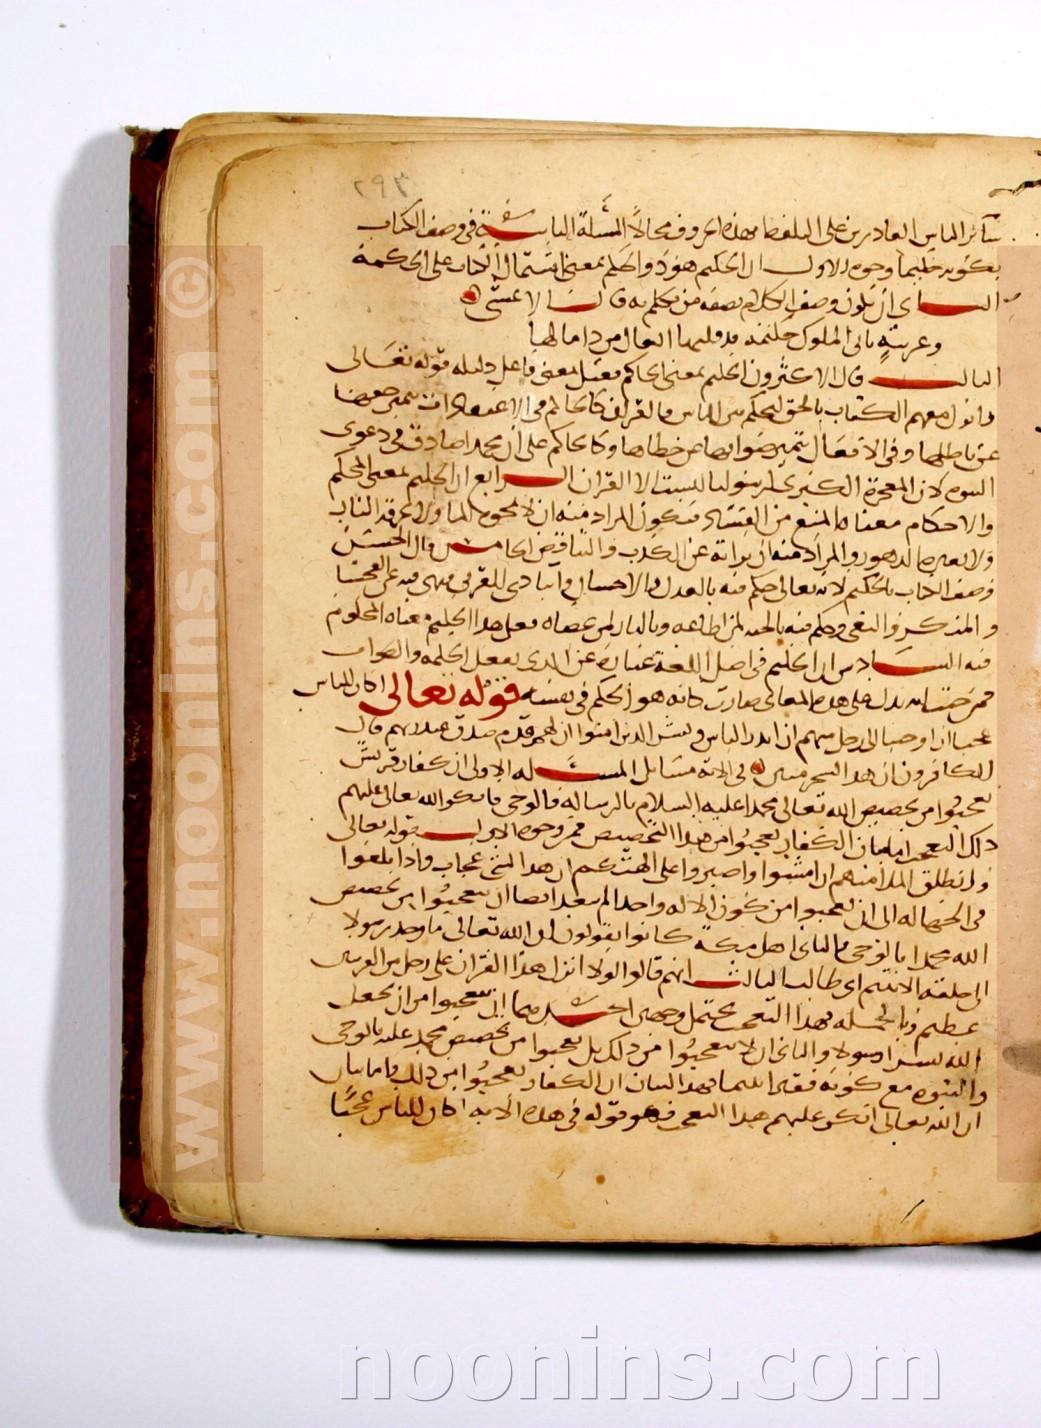 ٢٩٣
سائر الناس القادرين على التلفظ بهذه الحروف محالا المسئلة الثانية في وصف الكتاب
بكونه حكيما وجوه الاول ان الحكيم هو ذو الحكم بمعنى اشتمال الكتاب على الحكمة
الثاني ان يكون وصف الكلام بصفة من تكلم به قال الاعشى
وغريبة تاتي الملوك حكيمة قد قلتها ليقال من ذا قالها
الثالث قال الاكثرون الحكيم بمعنى الحاكم فعيل بمعنى فاعل دليله قوله تعالى
وانزل معهم الكتاب بالحق ليحكم بين الناس فالقرآن كالحاكم في الاعتقادات لتميز حقها
عن باطلها وفي الافعال لتميز صوابها عن خطاها وكالحاكم على ان محمدا صادق في دعوى
النبوة لان المعجزة الكبرى لرسولنا ليست الا القران الرابع ان الحكيم بمعنى المحكم
والاحكام معناه المنع من الفساد فيكون المراد منه انه لا يمحوه الماء ولا تحرقه النار
ولا تغيره الدهور والمراد منه براته عن الكذب والتناقض الخامس قال الحسن
وصف الكتاب بالحكيم لانه تعالى حكم فيه بالعدل والاحسان وايتاء ذي القربى ونهى فيه عن الفحشاء
والمنكر والبغي وحكم فيه بالجنة لمن اطاعه وبالنار لمن عصاه فعلى هذا الحكيم معناه المحكوم
فيه السادس ان الحكيم في اصل اللغة عبارة عن الذي يفعل الحكمة والصواب
فمن حيث انه يدل على هذه المعاني صارت كانه هو الحكيم في نفسه قوله تعالى اكان للناس
عجبا ان اوحينا الى رجل منهم ان انذر الناس وبشر الذين امنوا ان لهم قدم صدق عند ربهم قال
الكافرون ان هذا لسحر مبين في الاية مسائل المسئلة الاولى ان كفار قريش
تعجبوا من تخصيص الله تعالى محمدا عليه السلام بالرسالة والوحي فانكر الله تعالى عليهم
ذلك التعجب اما بيان ان الكفار تعجبوا من هذا التخصيص فمن وجوه الاول قوله تعالى
وانطلق الملا منهم ان امشوا واصبروا على الهتكم ان هذا لشئ عجاب واذا بلغوا
في الجهالة الى ان تعجبوا من كون الاله واحدا لم يبعد ايضا ان يتعجبوا من تخصيص
الله محمدا بالوحي الثاني اهل مكة كانوا يقولون ان الله تعالى ما وجد رسولا
الى خلقه الا يتيم ابي طالب الثالث انهم قالوا لولا انزل هذا القران على رجل من القريتين
عظيم وبالجملة فهذا التعجب يحتمل وجهين احدهما ان يتعجبوا من ان يجعل
الله بشرا رسولا والثاني ان لا يتعجبوا من ذلك بل تعجبوا من تخصيص محمد عليه بالوحي
والنبوة مع كونه فقيرا يتيما فهذا بيان ان الكفار تعجبوا من ذلك واما بيان
ان الله تعالى انكر عليهم هذا التعجب فهو قوله في هذه الاية اكان للناس عجبا
www.noonins.com ©
noonins.com